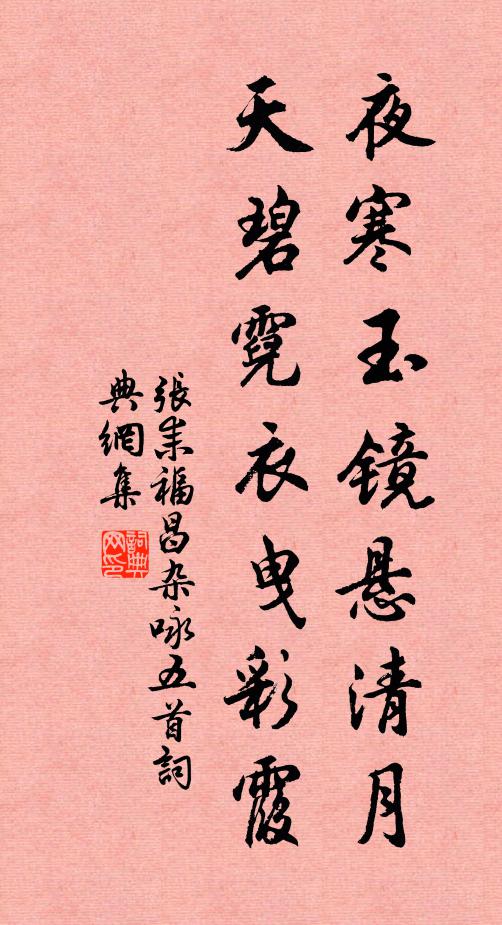 夜寒玉镜悬清月
天碧霓衣曳彩霞
張耒福昌杂咏五首詞
典網集
詞典
网印